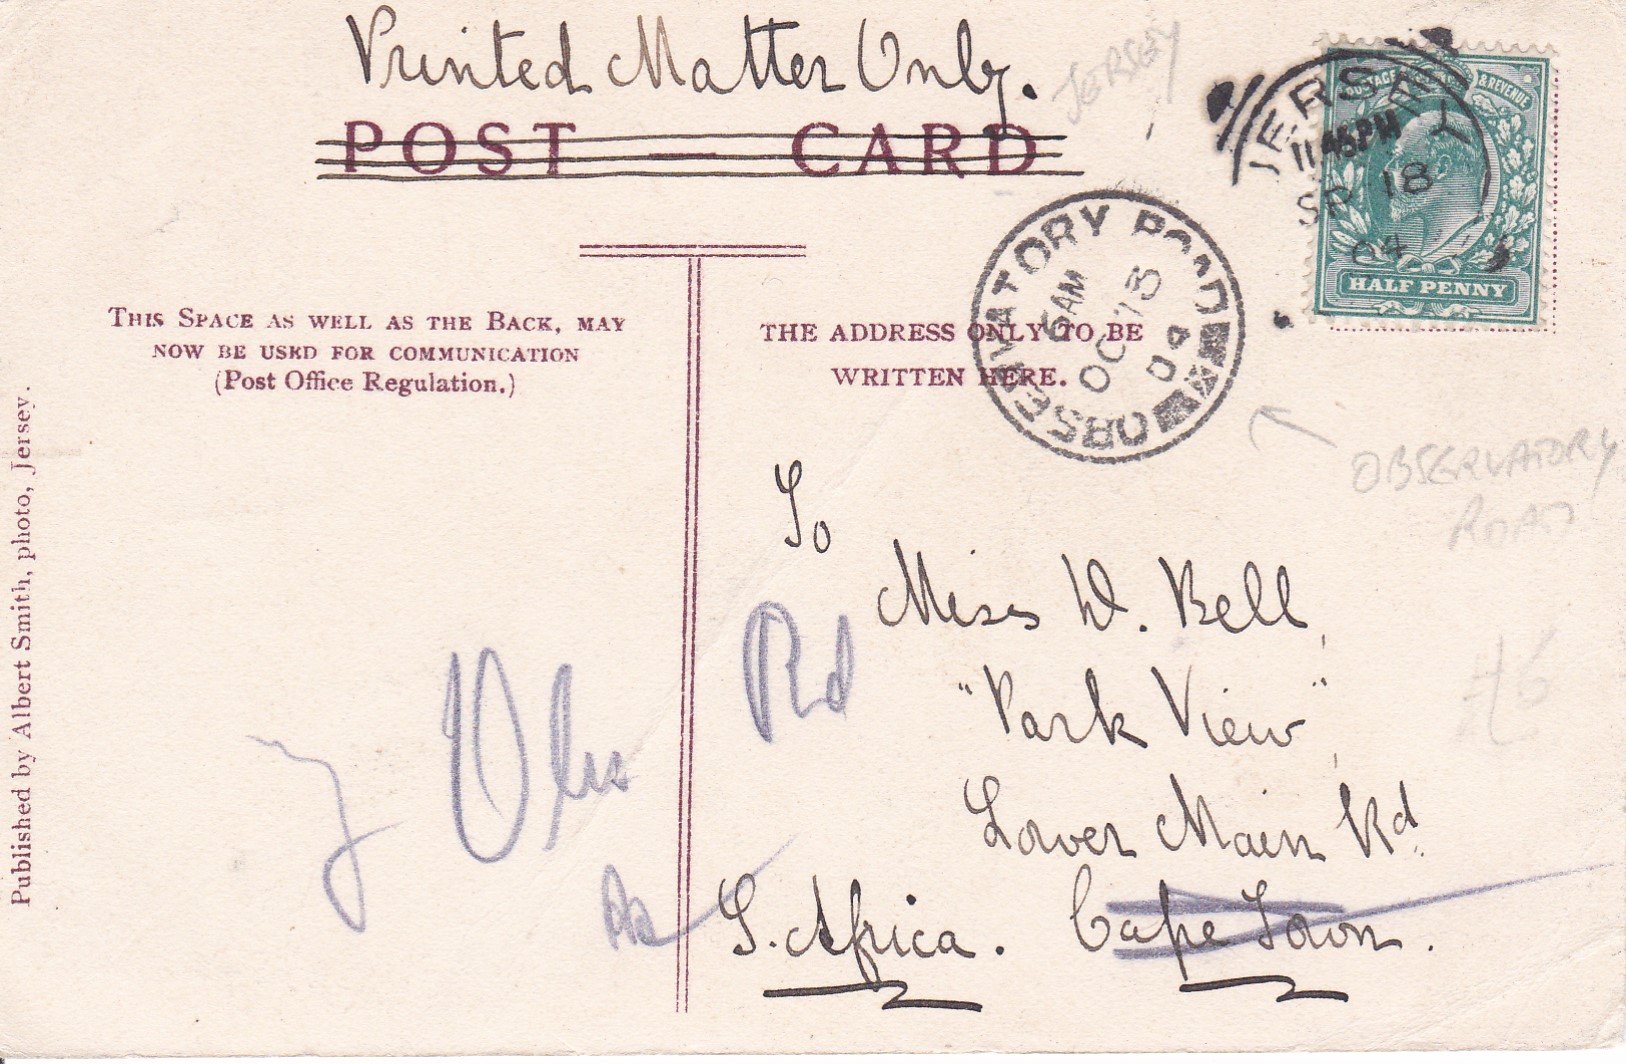 Printed Matter Only.
JERSEY
POST — CARD
JERSEY
11.45PM
SP 18
04
POSTAGE & REVENUE
HALF PENNY
OBSERVATORY ROAD
5 AM
OC 15
04
THIS SPACE AS WELL AS THE BACK, MAY
NOW BE USED FOR COMMUNICATION
(Post Office Regulation.)
THE ADDRESS ONLY TO BE
WRITTEN HERE.
OBSERVATORY
ROAD
To
Miss W. Bell,
"Park View",
Lower Main Rd.
Cape Town.
S. Africa.
Obs
Rd
Published by Albert Smith, photo, Jersey.